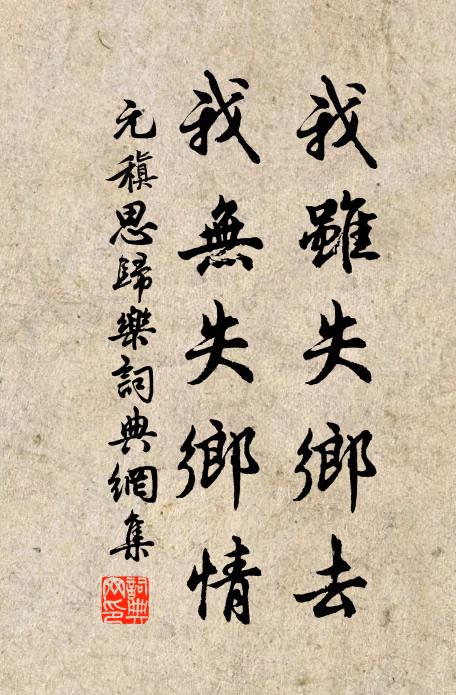 我雖失鄉去
我無失鄉情
元稹思歸樂詞典網集
詞典網印